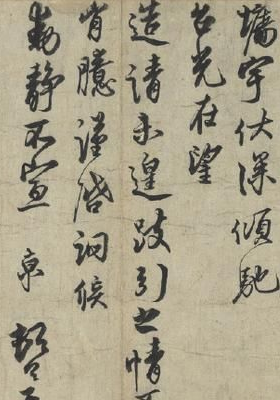 墻宇伏深傾馳
台光在望
造請未遑跂引之情
胷臆謹啓詗候
動靜不宣 京 頓首